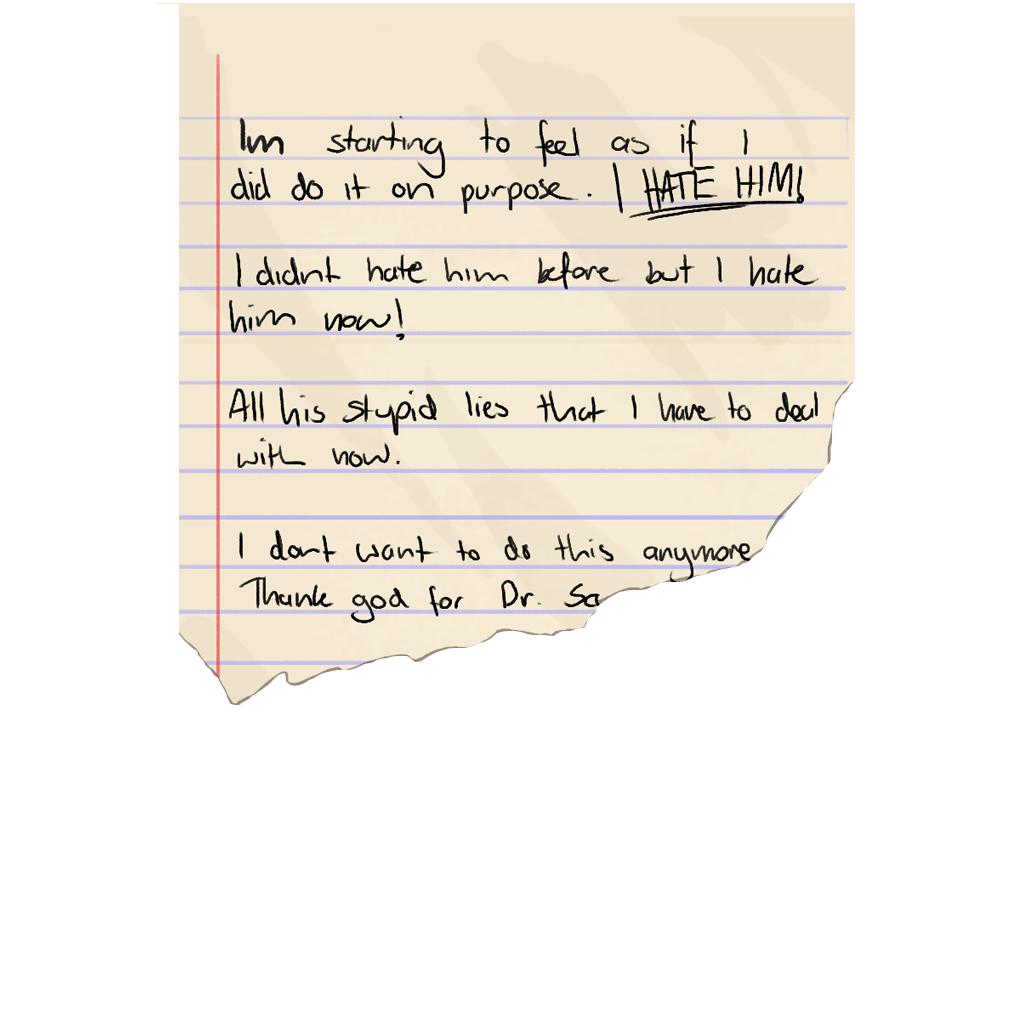 Im starting to feel as if I
did do it on purpose. I HATE HIM!
I didnt hate him before but I hate
him now!
All his stupid lies that I have to deal
with now.
I dont want to do this anymore
Thank god for Dr. Sa